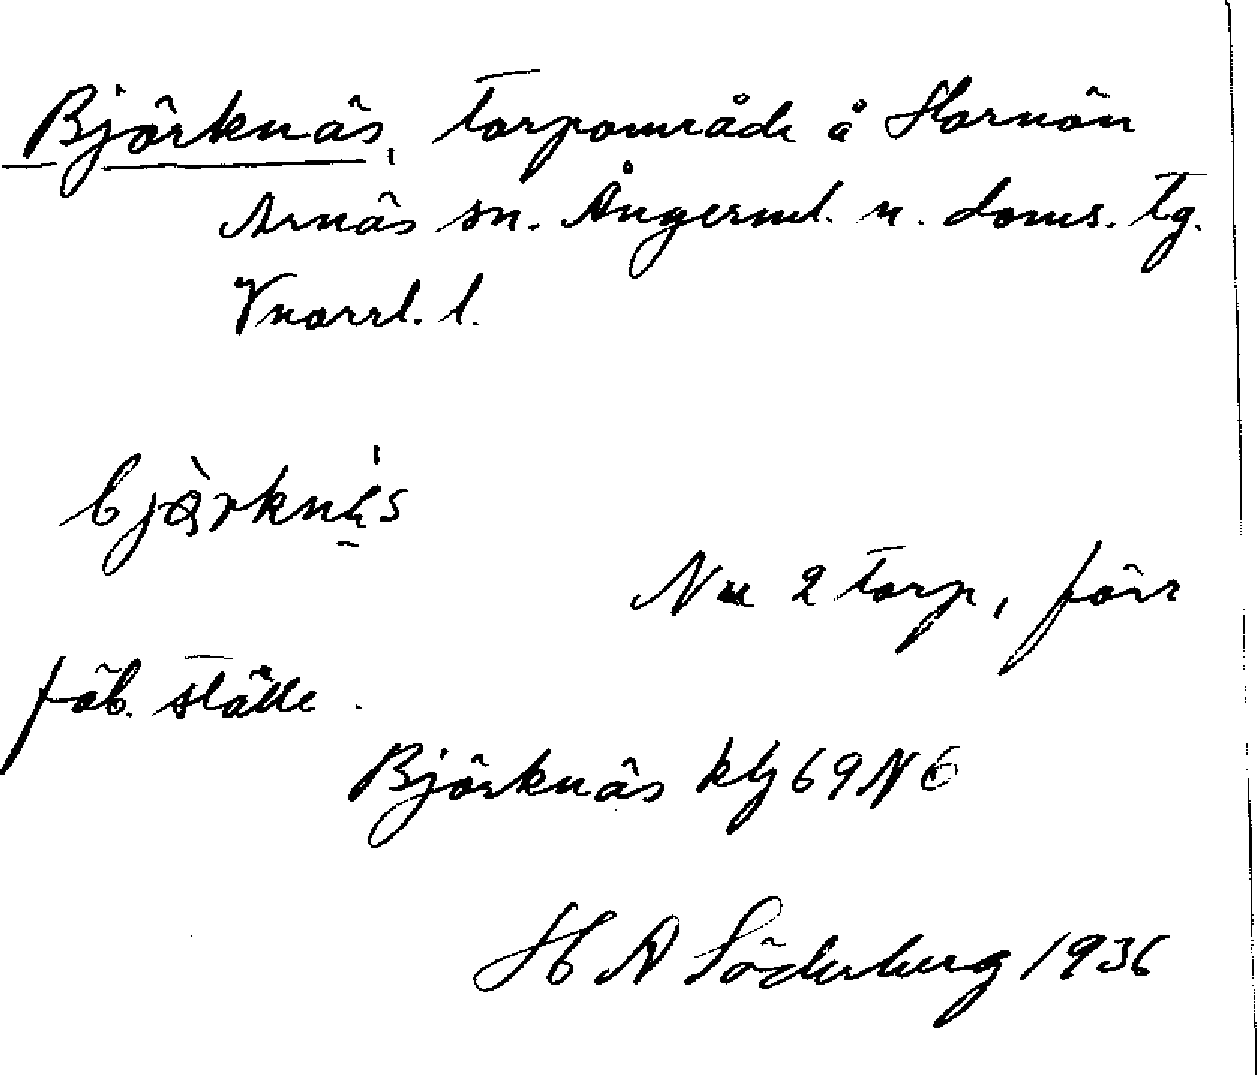 Björknäs, torpområde å Hornön
Arnäs sn. Ångerml. n. doms. tg.
Vnorrl. l.
bjö̀rknä́s
Nu 2 torp, förr
fäb. ställe.
Björknäs kbl 69 N Ö
H A Söderberg 1936